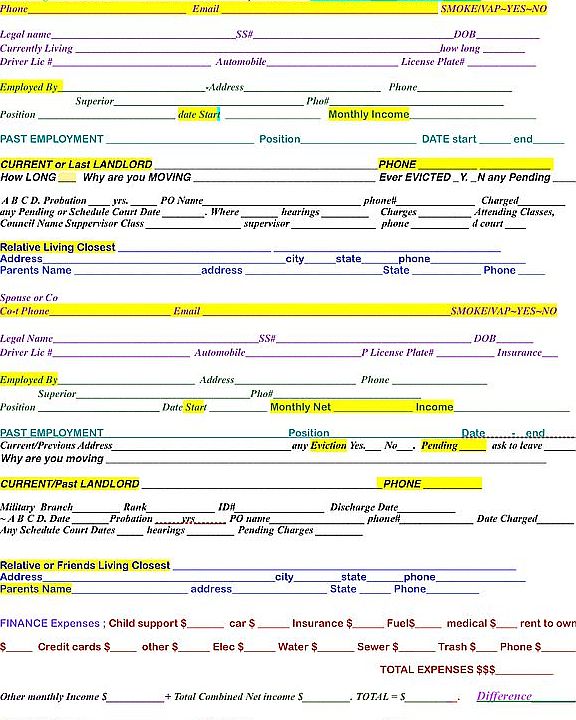 Phone____________________ Email____________________ SMOKE/VAP~YES~NO
Legal name____________________SS#____________________DOB__________
Currently Living ____________________how long __________
Driver Lic #____________________ Automobile____________________ License Plate#__________
Employed By____________________-Address____________________ Phone__________
Superior____________________Pho#____________________
Position ____________________ date Start ____________________ Monthly Income____________________
PAST EMPLOYMENT ____________________ Position____________________ DATE start _____ end_____
CURRENT or Last LANDLORD ____________________PHONE____________________
How LONG ___ Why are you MOVING ____________________ Ever EVICTED _Y. _N any Pending ____
A B C D. Probation ____ yrs. ____ PO Name____________________phone#____________________Charged_____
any Pending or Schedule Court Date________. Where _____ hearings ________ Charges ________ Attending Classes,
Council Name Suppervisor Class ____________________ supervisor__________ phone ______d court ____
Relative Living Closest ____________________
Address____________________city_____state______phone____________________
Parents Name ____________________address ____________________State ________ Phone _____
Spouse or Co
Co-t Phone____________________ Email ____________________SMOKE/VAP~YES~NO
Legal Name____________________SS#____________________ DOB______
Driver Lic #____________________ Automobile____________________P License Plate# __________ Insurance___
Employed By____________________ Address____________________ Phone __________
Superior____________________Pho#____________________
Position ____________________ Date Start __________ Monthly Net__________ Income____________________
PAST EMPLOYMENT____________________Position____________________Date____-__end____
Current/Previous Address____________________any Eviction Yes.___ No___. Pending _____ ask to leave _____
Why are you moving ____________________
CURRENT/Past LANDLORD ____________________ PHONE __________
Military Branch________ Rank__________ ID#____________________ Discharge Date__________
~ A B C D. Date _____Probation ____yrs______ PO name____________________phone#__________ Date Charged______
Any Schedule Court Dates _____ hearings ________ Pending Charges __________
Relative or Friends Living Closest ____________________
Address____________________city________state______phone__________
Parents Name____________________ address__________ State _____ Phone__________
FINANCE Expenses ; Child support $______ car $ _____ Insurance $_____ Fuel$____ medical $____ rent to own
$____ Credit cards $____ other $____ Elec $_____ Water $_____ Sewer $____ Trash $___ Phone $_____
TOTAL EXPENSES $$$__________
Other monthly Income $__________+ Total Combined Net income $________. TOTAL = $________. Difference__________